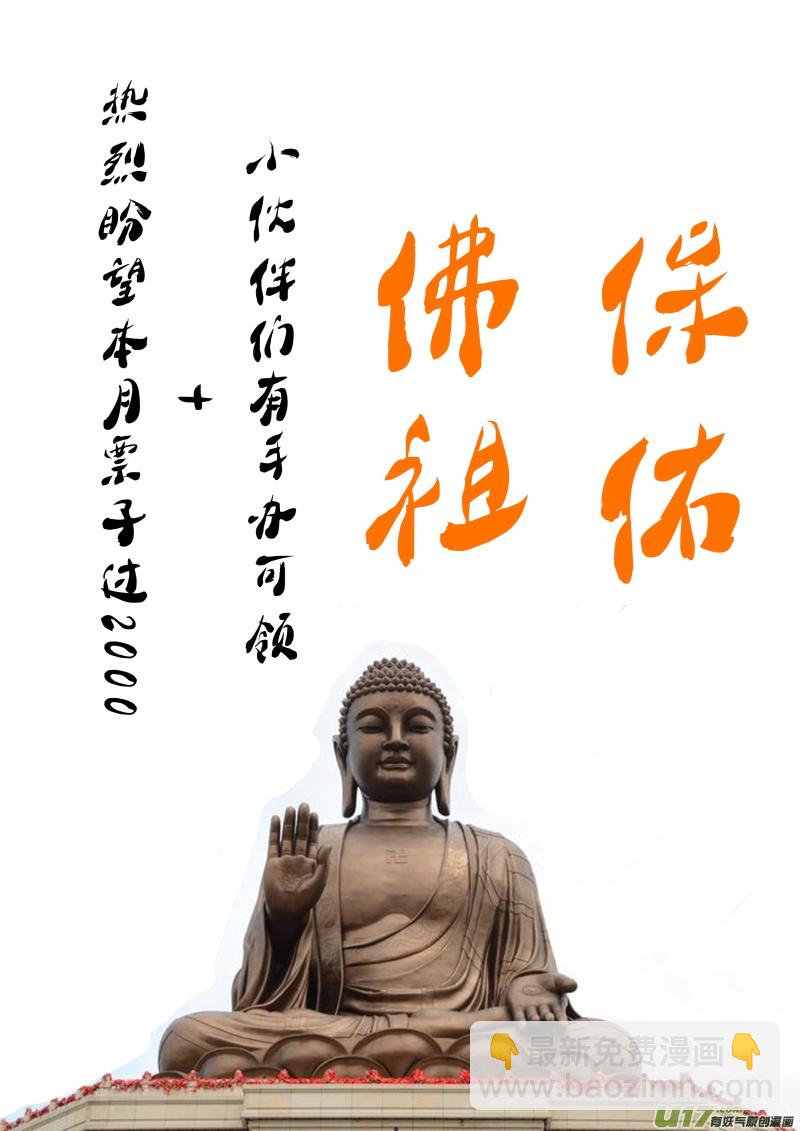 保佑
佛祖
小伙伴们有手办可领
+
热烈盼望本月票子过2000
👇最新免费漫画👇
www.baozimh.com
U17.COM
有妖气原创漫画